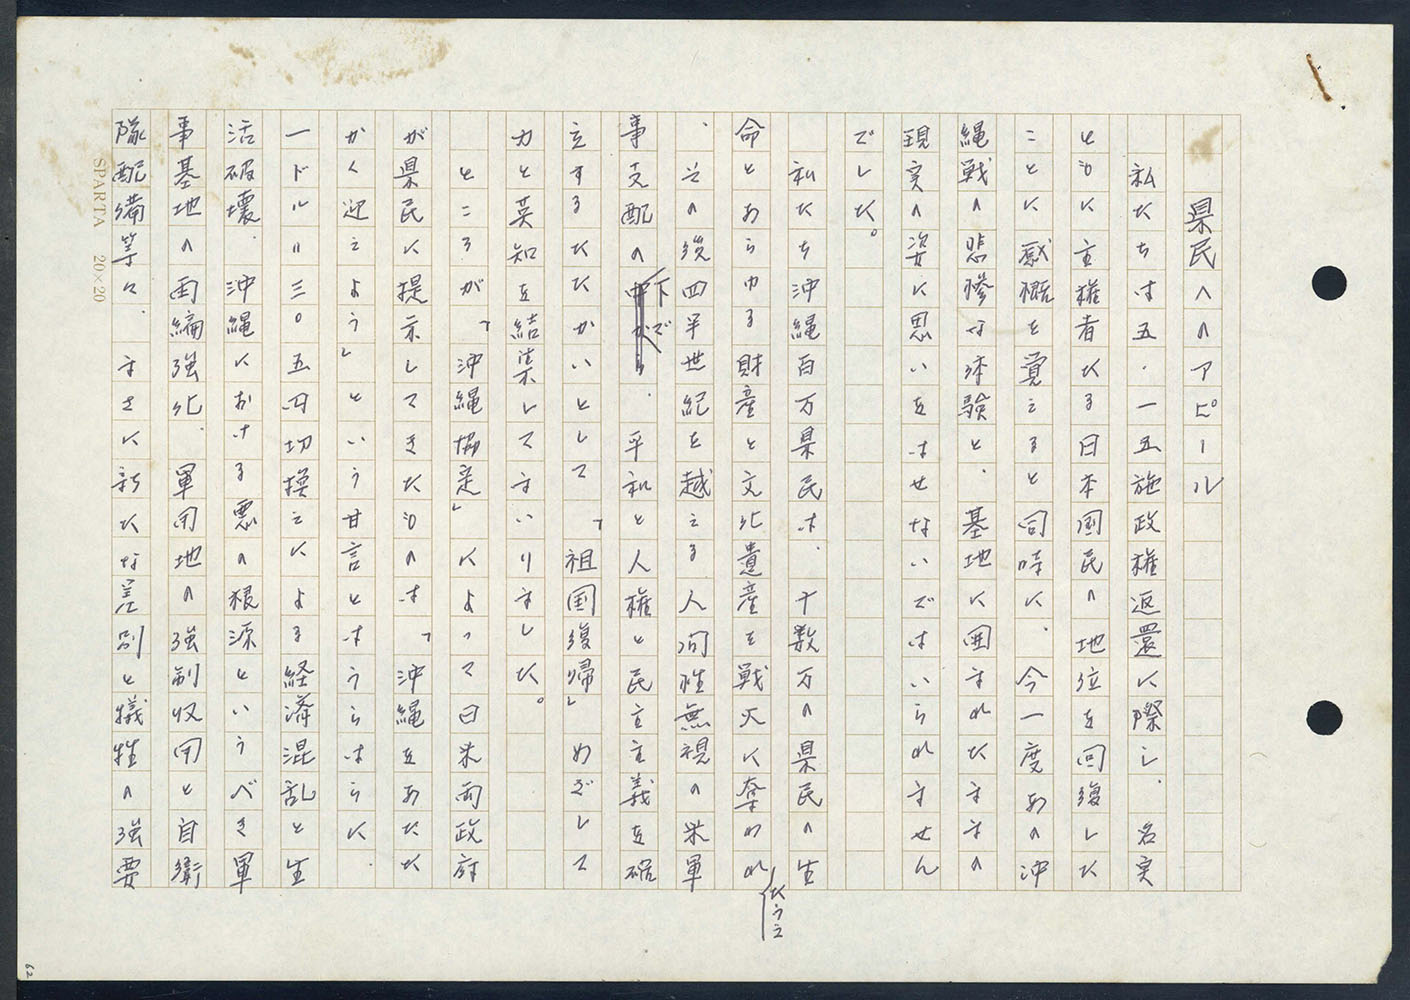 県民へのアピール
私たちは五・一五施政権返還に際し、名実
ともに主権者たる日本国民の地位を回復した
ことに感概を覚えると同時に、今一度あの沖
縄戦の悲惨な体験と、基地に囲まれたままの
現実の姿に思いをはせないではいられません
でした。
私たち沖縄百万県民は、十数万の県民の生
命とあらゆる財産と文化遺産を戦火に奪われ
たうえ
、その後四半世紀を越える人間性無視の米軍
事支配の下で、平和と人権と民主主義を確
立するたたかいとして「祖国復帰」めざして
力と英知を結集してまいりました。
ところが、「沖縄協定」によって日米両政府
が県民に提示してきたものは、「沖縄をあたた
かく迎えよう」という甘言とはうらはらに、
一ドル=三〇五円切換えによる経済混乱と生
活破壊、沖縄における悪の根源というべき軍
事基地の再編強化、軍用地の強制収用と自衛
隊配備等々、まさに新たな差別と犠牲の強要
SPARTA 20×20
62